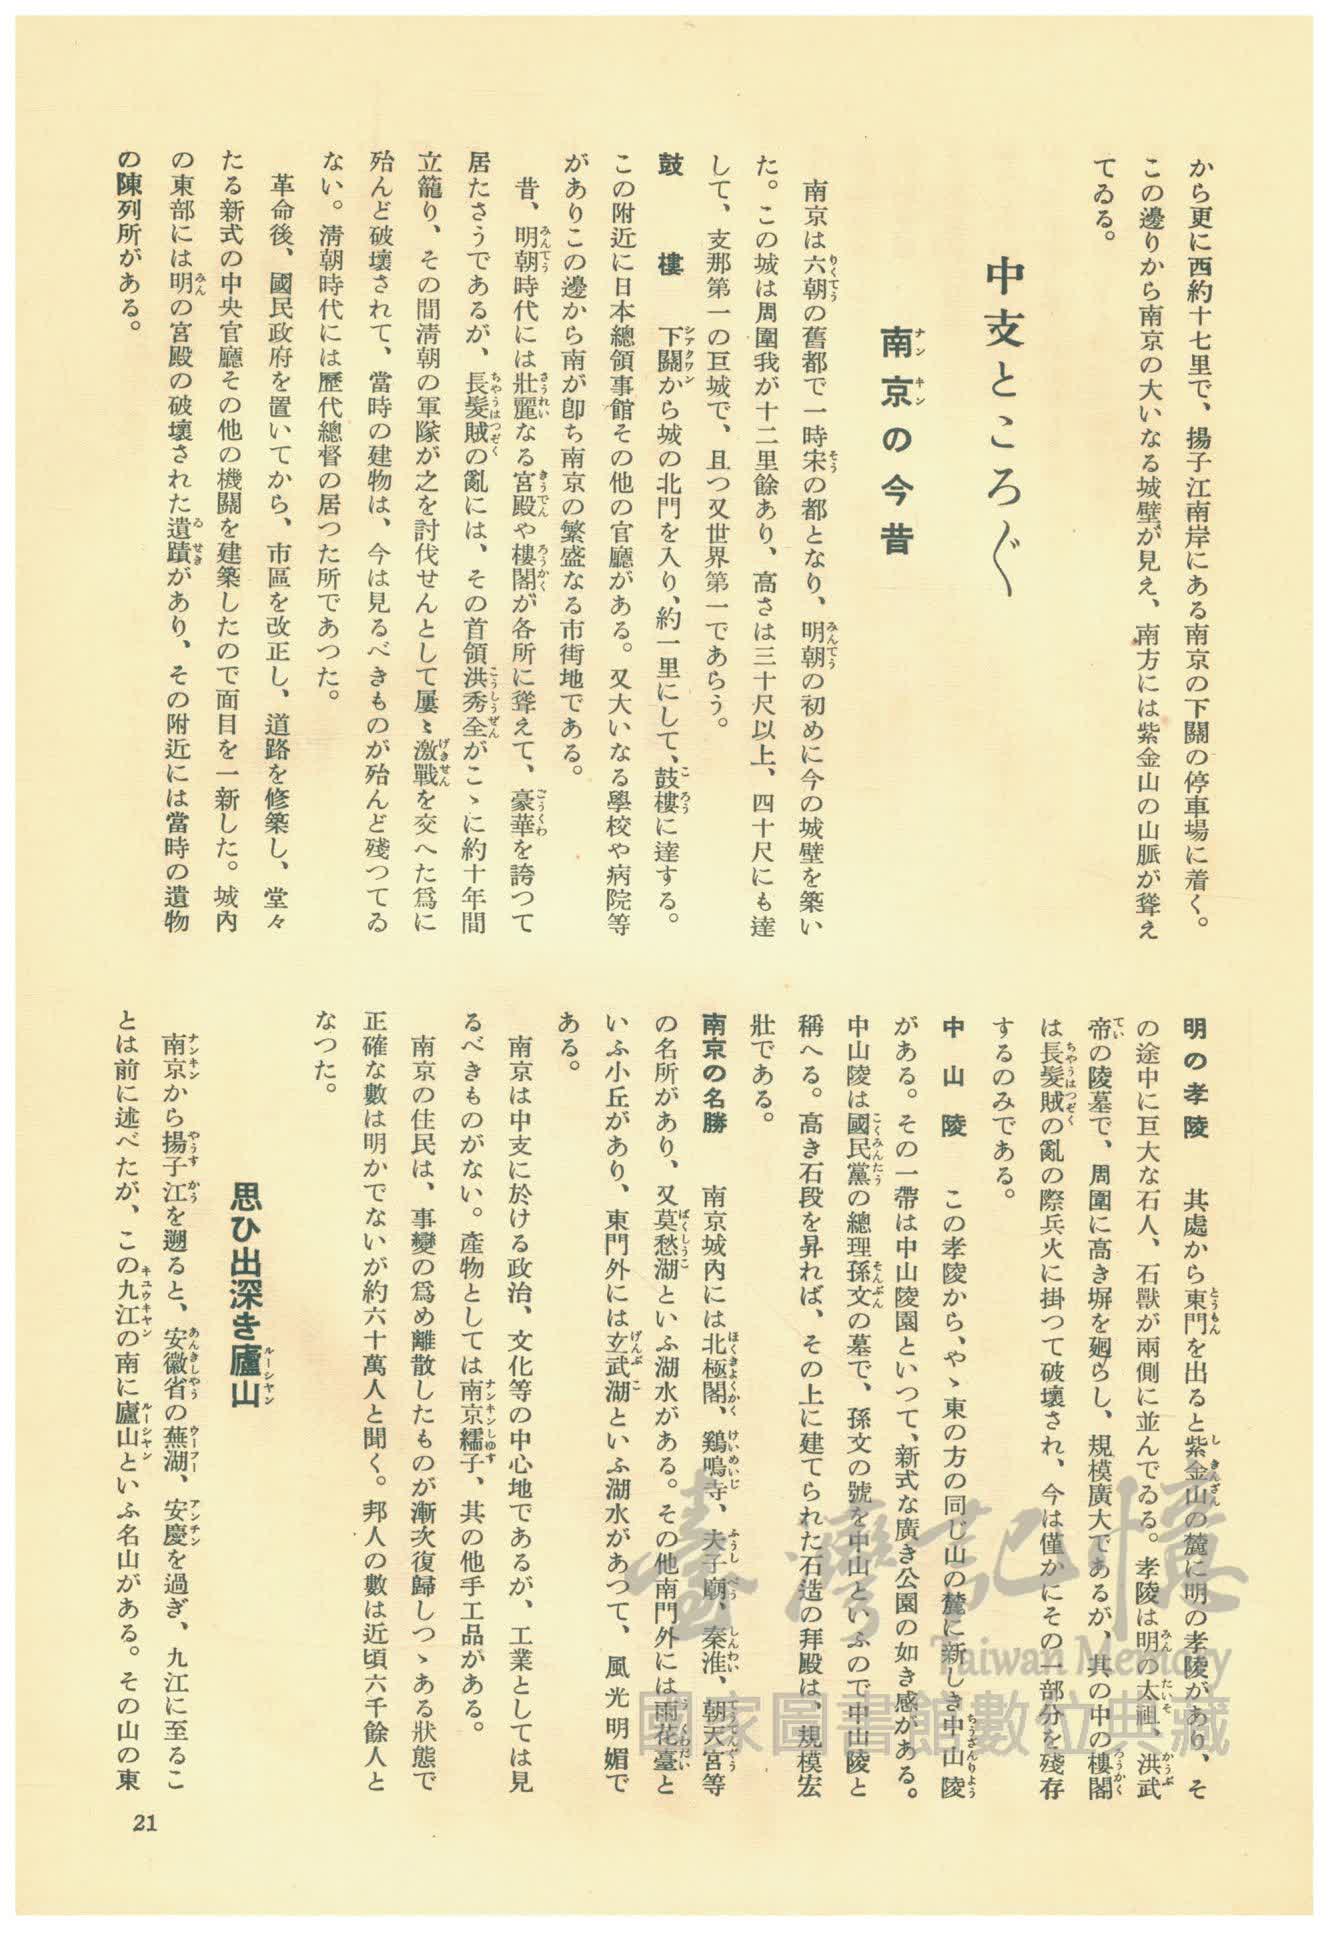 から更に西約十七里で、揚子江南岸にある南京の下關の停車場に着く。
この邊りから南京の大いなる城壁が見え、南方には紫金山の山脈が聳え
てゐる。
中支ところ〴〵
南京の今昔
ナンキン
南京は六朝の舊都で一時宋の都となり、明朝の初めに今の城壁を築い
りくてう そう みんてう
た。この城は周圍我が十二里餘あり、高さは三十尺以上、四十尺にも達
して、支那第一の巨城で、且つ又世界第一であらう。
鼓樓 下關から城の北門を入り、約一里にして、鼓樓に達する。
シアクワン ころう
この附近に日本總領事館その他の官廳がある。又大いなる學校や病院等
がありこの邊から南が卽ち南京の繁盛なる市街地である。
昔、明朝時代には壯麗なる宮殿や樓閣が各所に聳えて、豪華を誇つて
みんてう さうれい きうでん ろうかく ごうくわ
居たさうであるが、長髮賊の亂には、その首領洪秀全がこゝに約十年間
ちやうはつぞく こうしうぜん
立籠り、その間淸朝の軍隊が之を討伐せんとして屢〻激戰を交へた爲に
げきせん
殆んど破壞されて、當時の建物は、今は見るべきものが殆んど殘つてゐ
ない。淸朝時代には歷代總督の居つた所であつた。
革命後、國民政府を置いてから、市區を改正し、道路を修築し、堂々
たる新式の中央官廳その他の機關を建築したので面目を一新した。城內
の東部には明の宮殿の破壞された遺蹟があり、その附近には當時の遺物
みん ゐせき
の陳列所がある。
明の孝陵 其處から東門を出ると紫金山の麓に明の孝陵があり、そ
とうもん しきんざん
の途中に巨大な石人、石獸が兩側に並んでゐる。孝陵は明の太祖、洪武
みん たいそ かうぶ
帝の陵墓で、周圍に高き塀を廻らし、規模廣大であるが、其の中の樓閣
てい ろうかく
は長髮賊の亂の際兵火に掛つて破壞され、今は僅かにその一部分を殘存
ちやうはつぞく
するのみである。
中山陵 この孝陵から、やゝ東の方の同じ山の麓に新しき中山陵
ちうざんりよう
がある。その一帶は中山陵園といつて、新式な廣き公園の如き感がある。
中山陵は國民黨の總理孫文の墓で、孫文の號を中山といふので中山陵と
こくみんたう そんぶん
稱へる。高き石段を昇れば、その上に建てられた石造の拜殿は、規模宏
壯である。
南京の名勝 南京城內には北極閣、鷄鳴寺、夫子廟、秦淮、朝天宮等
ほくきよくかく けいめいじ ふうしべう しんわい てうてんぐう
の名所があり、又莫愁湖といふ湖水がある。その他南門外には雨花臺と
ばくしうこ うくわだい
いふ小丘があり、東門外には玄武湖といふ湖水があつて、風光明媚で
げんぶこ
ある。
南京は中支に於ける政治、文化等の中心地であるが、工業としては見
るべきものがない。產物としては南京繻子、其の他手工品がある。
ナンキンしゆす
南京の住民は、事變の爲め離散したものが漸次復歸しつゝある狀態で
正確な數は明かでないが約六十萬人と聞く。邦人の數は近頃六千餘人と
なつた。
思ひ出深き廬山
ルーシヤン
南京から揚子江を遡ると、安徽省の蕪湖、安慶を過ぎ、九江に至るこ
ナンキン やうすかう あんきしやう ウーフー アンチン
とは前に述べたが、この九江の南に廬山といふ名山がある。その山の東
キユウキヤン ルーシヤン
21
臺灣記憶
Taiwan Memory
國家圖書館數位典藏